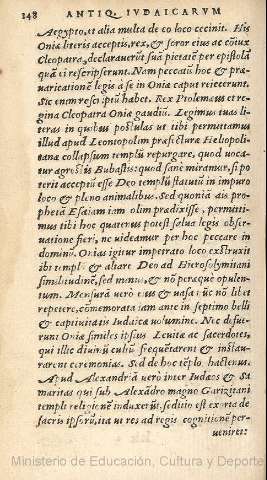 148 ANTIQ. IVDAICARVM
Aegypto, et alia multa de eo loco cecinit. His
Onia literis acceptis, rex, & soror eius ac cōiux
Cleopatra, declarauerūt suā pietatē per epistolā
quā ei rescripserunt. Nam peccatū hoc & præ-
uaricationē legis à se in Onia caput reiecerunt.
Sic enim rescriptū habet. Rex Ptolemæus et re-
gina Cleopatra Onia gaudiū. Legimus tuas li-
teras in quibus postulas ut tibi permittamus
illud apud Leontopolim præfecturæ Heliopoli-
tanæ collapsum templū repurgare, quod uoca-
tur agrestis Bubastis: quod sanè miramur, si po
terit acceptū esse Deo templū statutū in impuro
loco & pleno animalibus. Sed quoniā ais pro-
phetā Esaiam iam olim prædixisse, permitti-
mus tibi hoc quatenus potest salua legis obser-
uatione fieri, ne uideamur per hoc peccare in
dominū. Onias igitur imperato loco exstruxit
ibi templū & altare Deo ad Hierosolymitani
similitudinē, sed minus, & nō peræque opulen-
tum. Mensurā verò eius & uasa nūc nō libet
repetere, cōmemorata iam ante in septimo belli
& captiuitatis Iudaicæ uolumine. Nec defue-
runt Onia similes ipsius Leuitæ ac sacerdotes,
qui illic diuinū cultū frequētarent & instau-
rarent ceremonias. Sed de hoc tēplo, hactenus.
Apud Alexandriā verò inter Iudæos & Sa
maritas qui sub Alexādro magno Garizitani
templi religionē induxerūt, seditio est exorta de
sacris ipsorū, ita ut res ad regis cognitionē per-
uenıret:
Ministerio de Educación, Cultura y Deporte